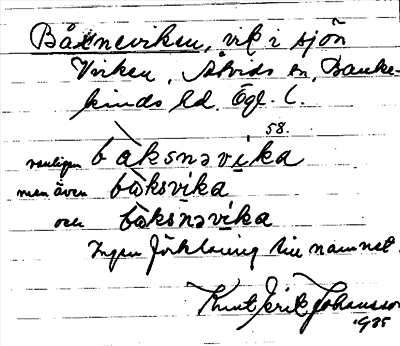 Båxneviken, vik i sjön
Virken, Åtvids sn, Banke-
kinds hd. Ögl. l.
58.
vanligen båksnəvika
men även båksvika
och båksnəvika
Ingen förklaring till namnet.
Knut Erik Johansson
1935